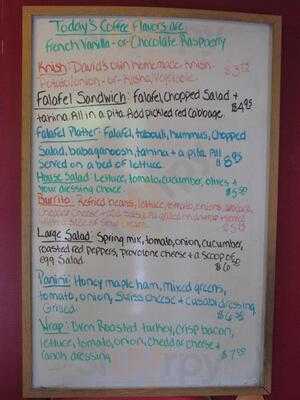 Today's Coffee Flavors are
French Vanilla -or- Chocolate Raspberry
Knish - David's own homemade knish
Potato/onion -or- Kasha, Vegetable
Falafel Sandwich: Falafel, Chopped Salad +
tahina All in a pita Add pickled red cabbage
Falafel Platter - Falafel, tabouli, hummus, Chopped
Salad, babaganoosh, tahina + a pita All
Served on a bed of lettuce
House Salad: Lettuce, tomato, cucumber, olives +
your dressing choice
Burrito: Refried beans, lettuce, tomato, onions,
Cheddar Cheese
Large Salad: Spring mix, tomato, onion, cucumber,
roasted red peppers, provolone cheese + a Scoop of
egg Salad
Panini: Honey maple ham, mixed greens,
tomato, onion, Swiss cheese + Wasabi dressing
Grilled
Wrap: Oven Roasted turkey, crisp bacon,
lettuce, tomato, onion, cheddar cheese +
ranch dressing $7.95